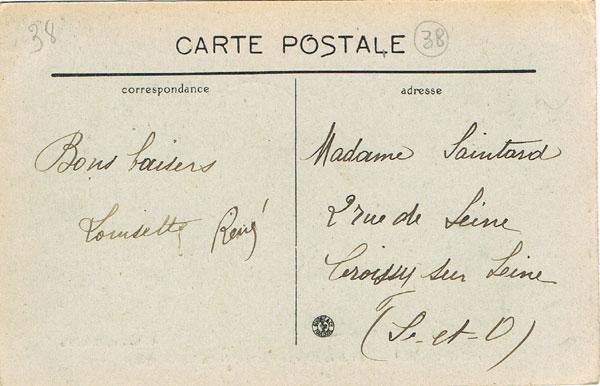 38
CARTE POSTALE
38
correspondance
adresse
Bons baisers
Louisette René
Madame Saintard
2 rue de Seine
Croissy sur Seine
(S-et-O)